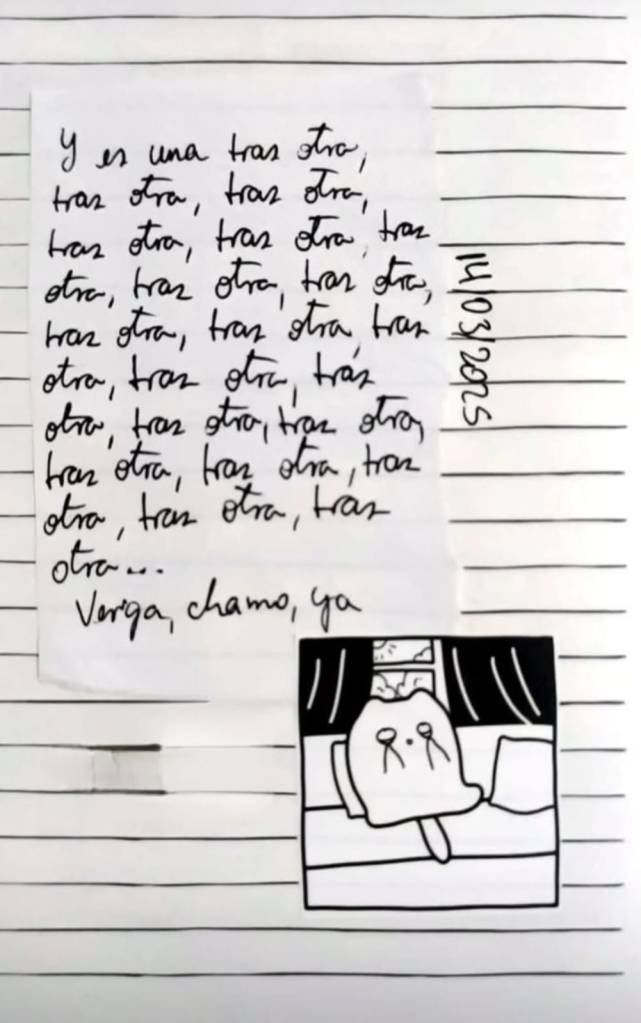 Y es una tras otra,
tras otra, tras otra,
tras otra, tras otra, tras
otra, tras otra, tras otra,
tras otra, tras otra, tras
otra, tras otra, trás
otra, tras otra, tras otra,
tras otra, tras otra, tras
otra, tras otra, tras
otra...
Verga, chamo, ya
14/03/2025